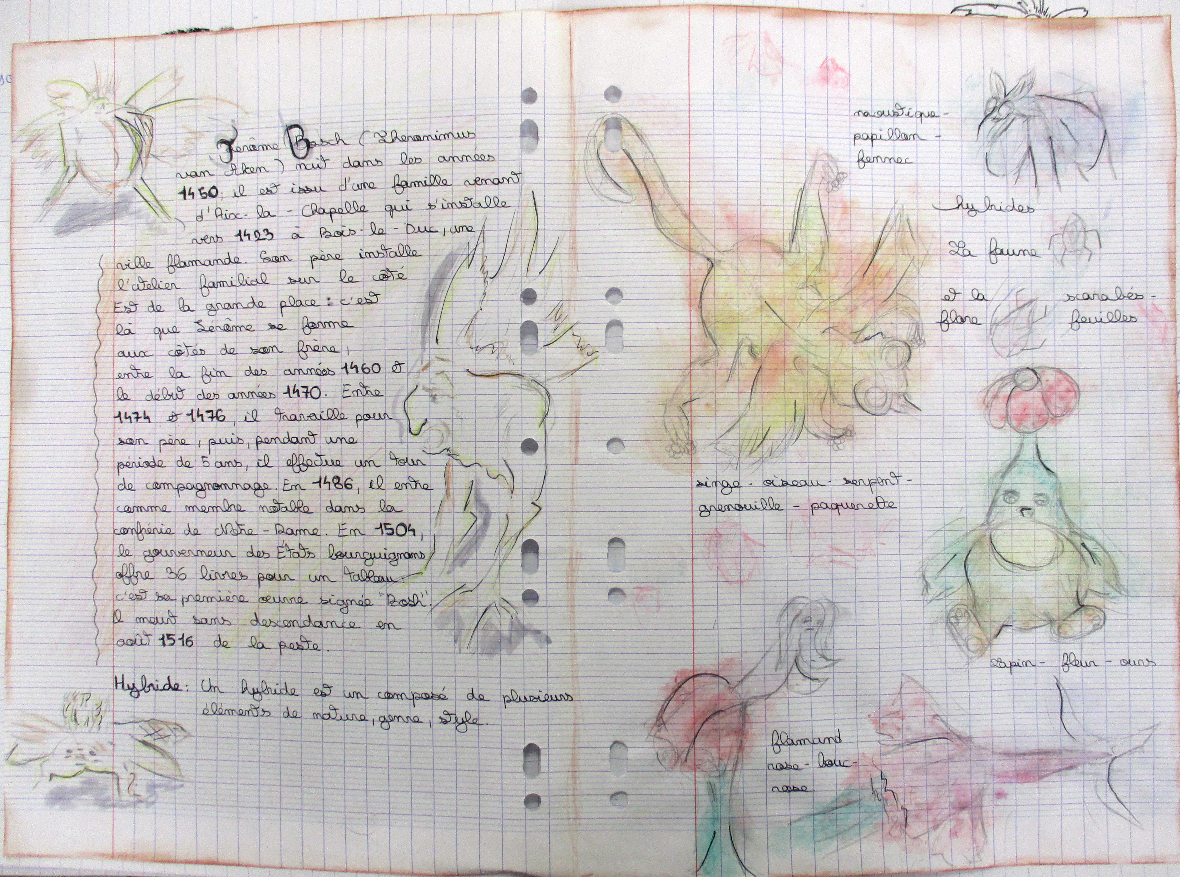 Jerôme Bosch (Jheronimus
van Aken) nait dans les années
1450, il est issu d'une famille venant
d'Aix-la-Chapelle qui s'installe
vers 1423 à Bois-le-Duc, une
ville flamande. Son père installe
l'atelier familial sur le côté
Est de la grande place : c'est
là que Jerôme se forme
aux côtés de son frère,
entre la fin des années 1460 et
le début des années 1470. Entre
1474 et 1476, il travaille pour
son père, puis, pendant une
période de 5 ans, il effectue un tour
de compagnonnage. En 1486, il entre
comme membre notable dans la
confrérie de Notre-Dame. En 1504,
le gouverneur des États bourguignons
offre 36 livres pour un tableau :
c'est sa première œuvre signée "Bosh".
Il meurt sans descendance en
août 1516 de la peste.
Hybride : Un hybride est un composé de plusieurs
éléments de nature, genre, style.
moustique-
papillon-
fennec
hybrides
La faune
et la
flore
scarabés-
feuilles
singe - oiseau - serpent -
grenouille - paquerette
sapin - fleur - ours
flamand
rose - bouc -
rose